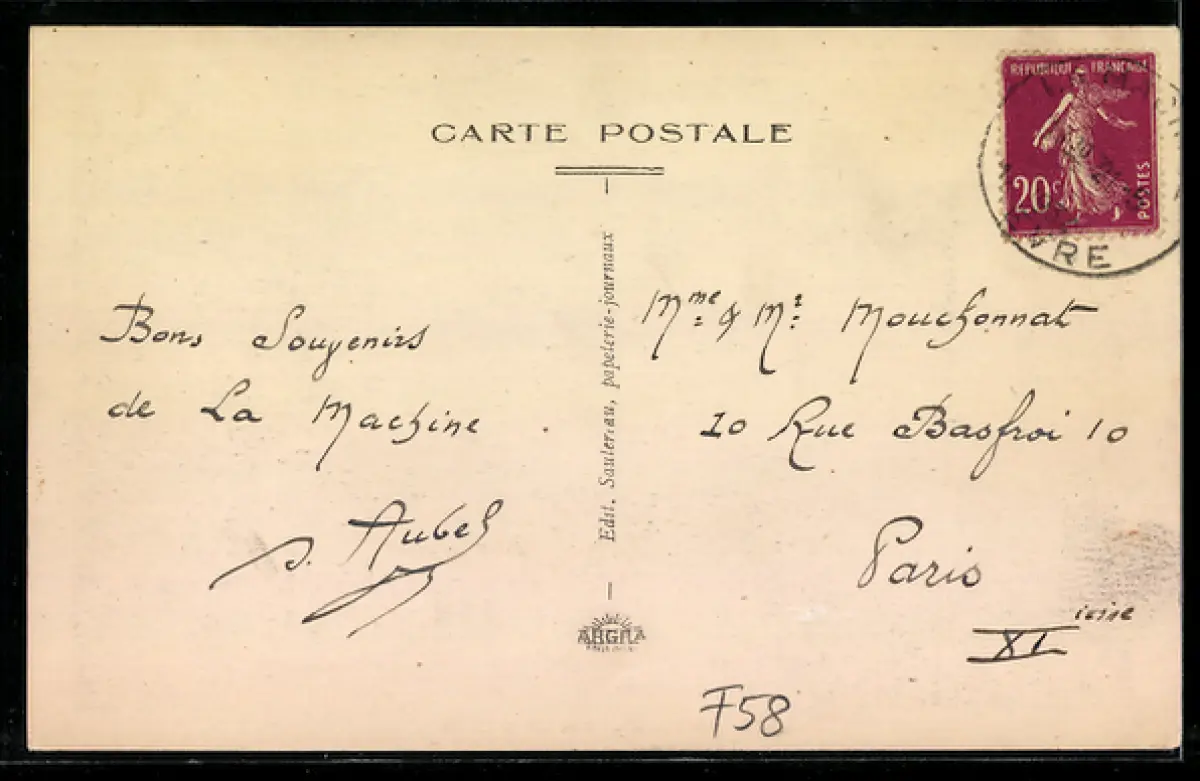 CARTE POSTALE
REPUBLIQUE FRANÇAISE
20c
POSTES
RE
Bons Souvenirs
de La Machine
Aubel
Edit. Sautereau, papeterie-journaux
Mme & Mr Mouchonnat
10 Rue Basfroi 10
Paris
XI ieme
F58